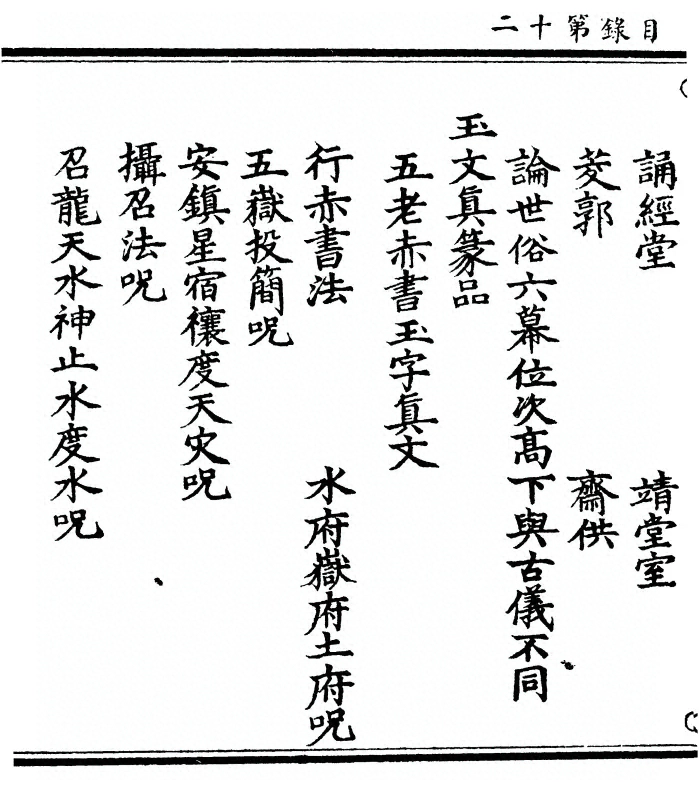 目錄第十二
誦經堂　靖堂室
茭郭　齋供
論世俗六幕位次高下與古儀不同
玉文真篆品
五老赤書玉字真文
行赤書法　水府嶽府土府呪
五嶽投簡呪
安鎮星宿禳度天災呪
攝召法呪
召龍天水神止水度水呪